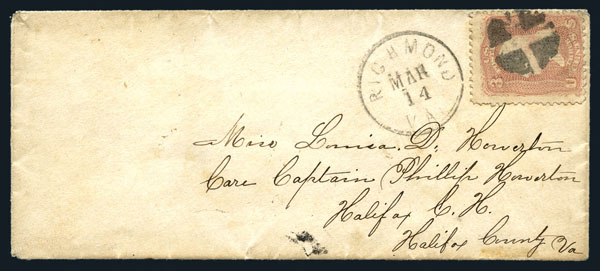 RICHMOND
MAR
14
VA
Miss Louisa. D. Howerton
Care Captain Phillip Howerton
Halifax C. H.
Halifax County Va